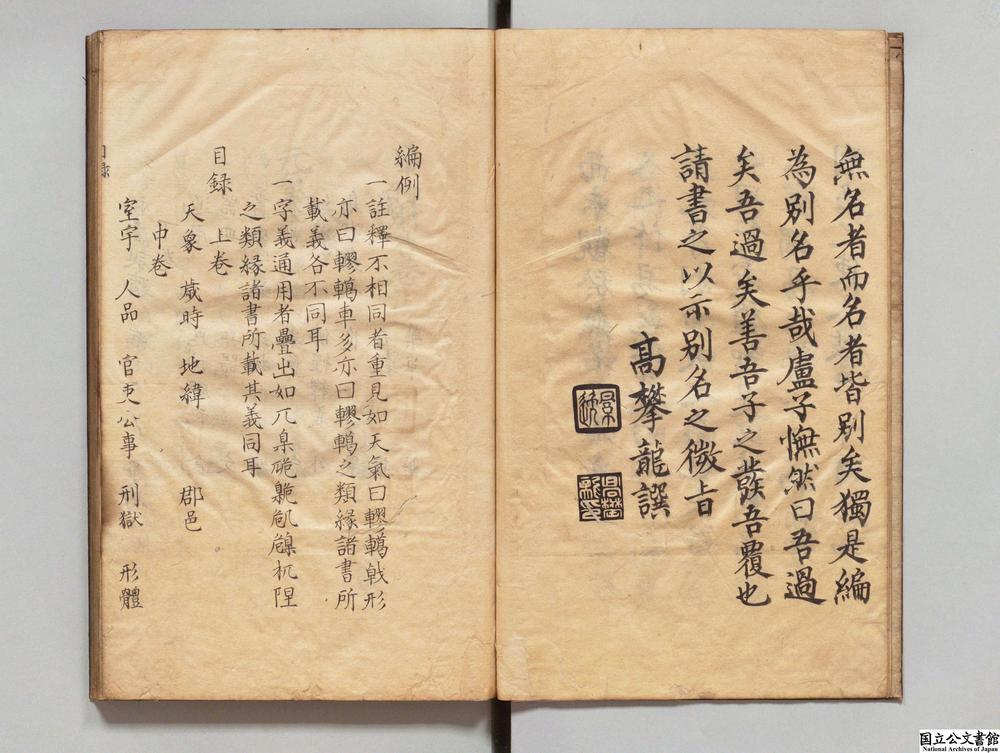 無名者而名者皆別矣獨是編
為別名乎哉盧子憮然曰吾過
矣吾過矣善吾子之發吾覆也
請書之以示別名之微旨
高攀龍譔
編例
一註釋不相同者重見如天氣曰轇轕戟形
亦曰轇轕車多亦曰轇轕之類緣諸書所
載義各不同耳
一字義通用者疊出如兀臬硊臲卼𡰈杌隉
之類緣諸書所載其義同耳
目録
上卷
天象 歳時 地緯 郡邑
中卷
室宇 人品 官吏 公事 刑獄 形體
目録
国立公文書館
National Archives of Japan